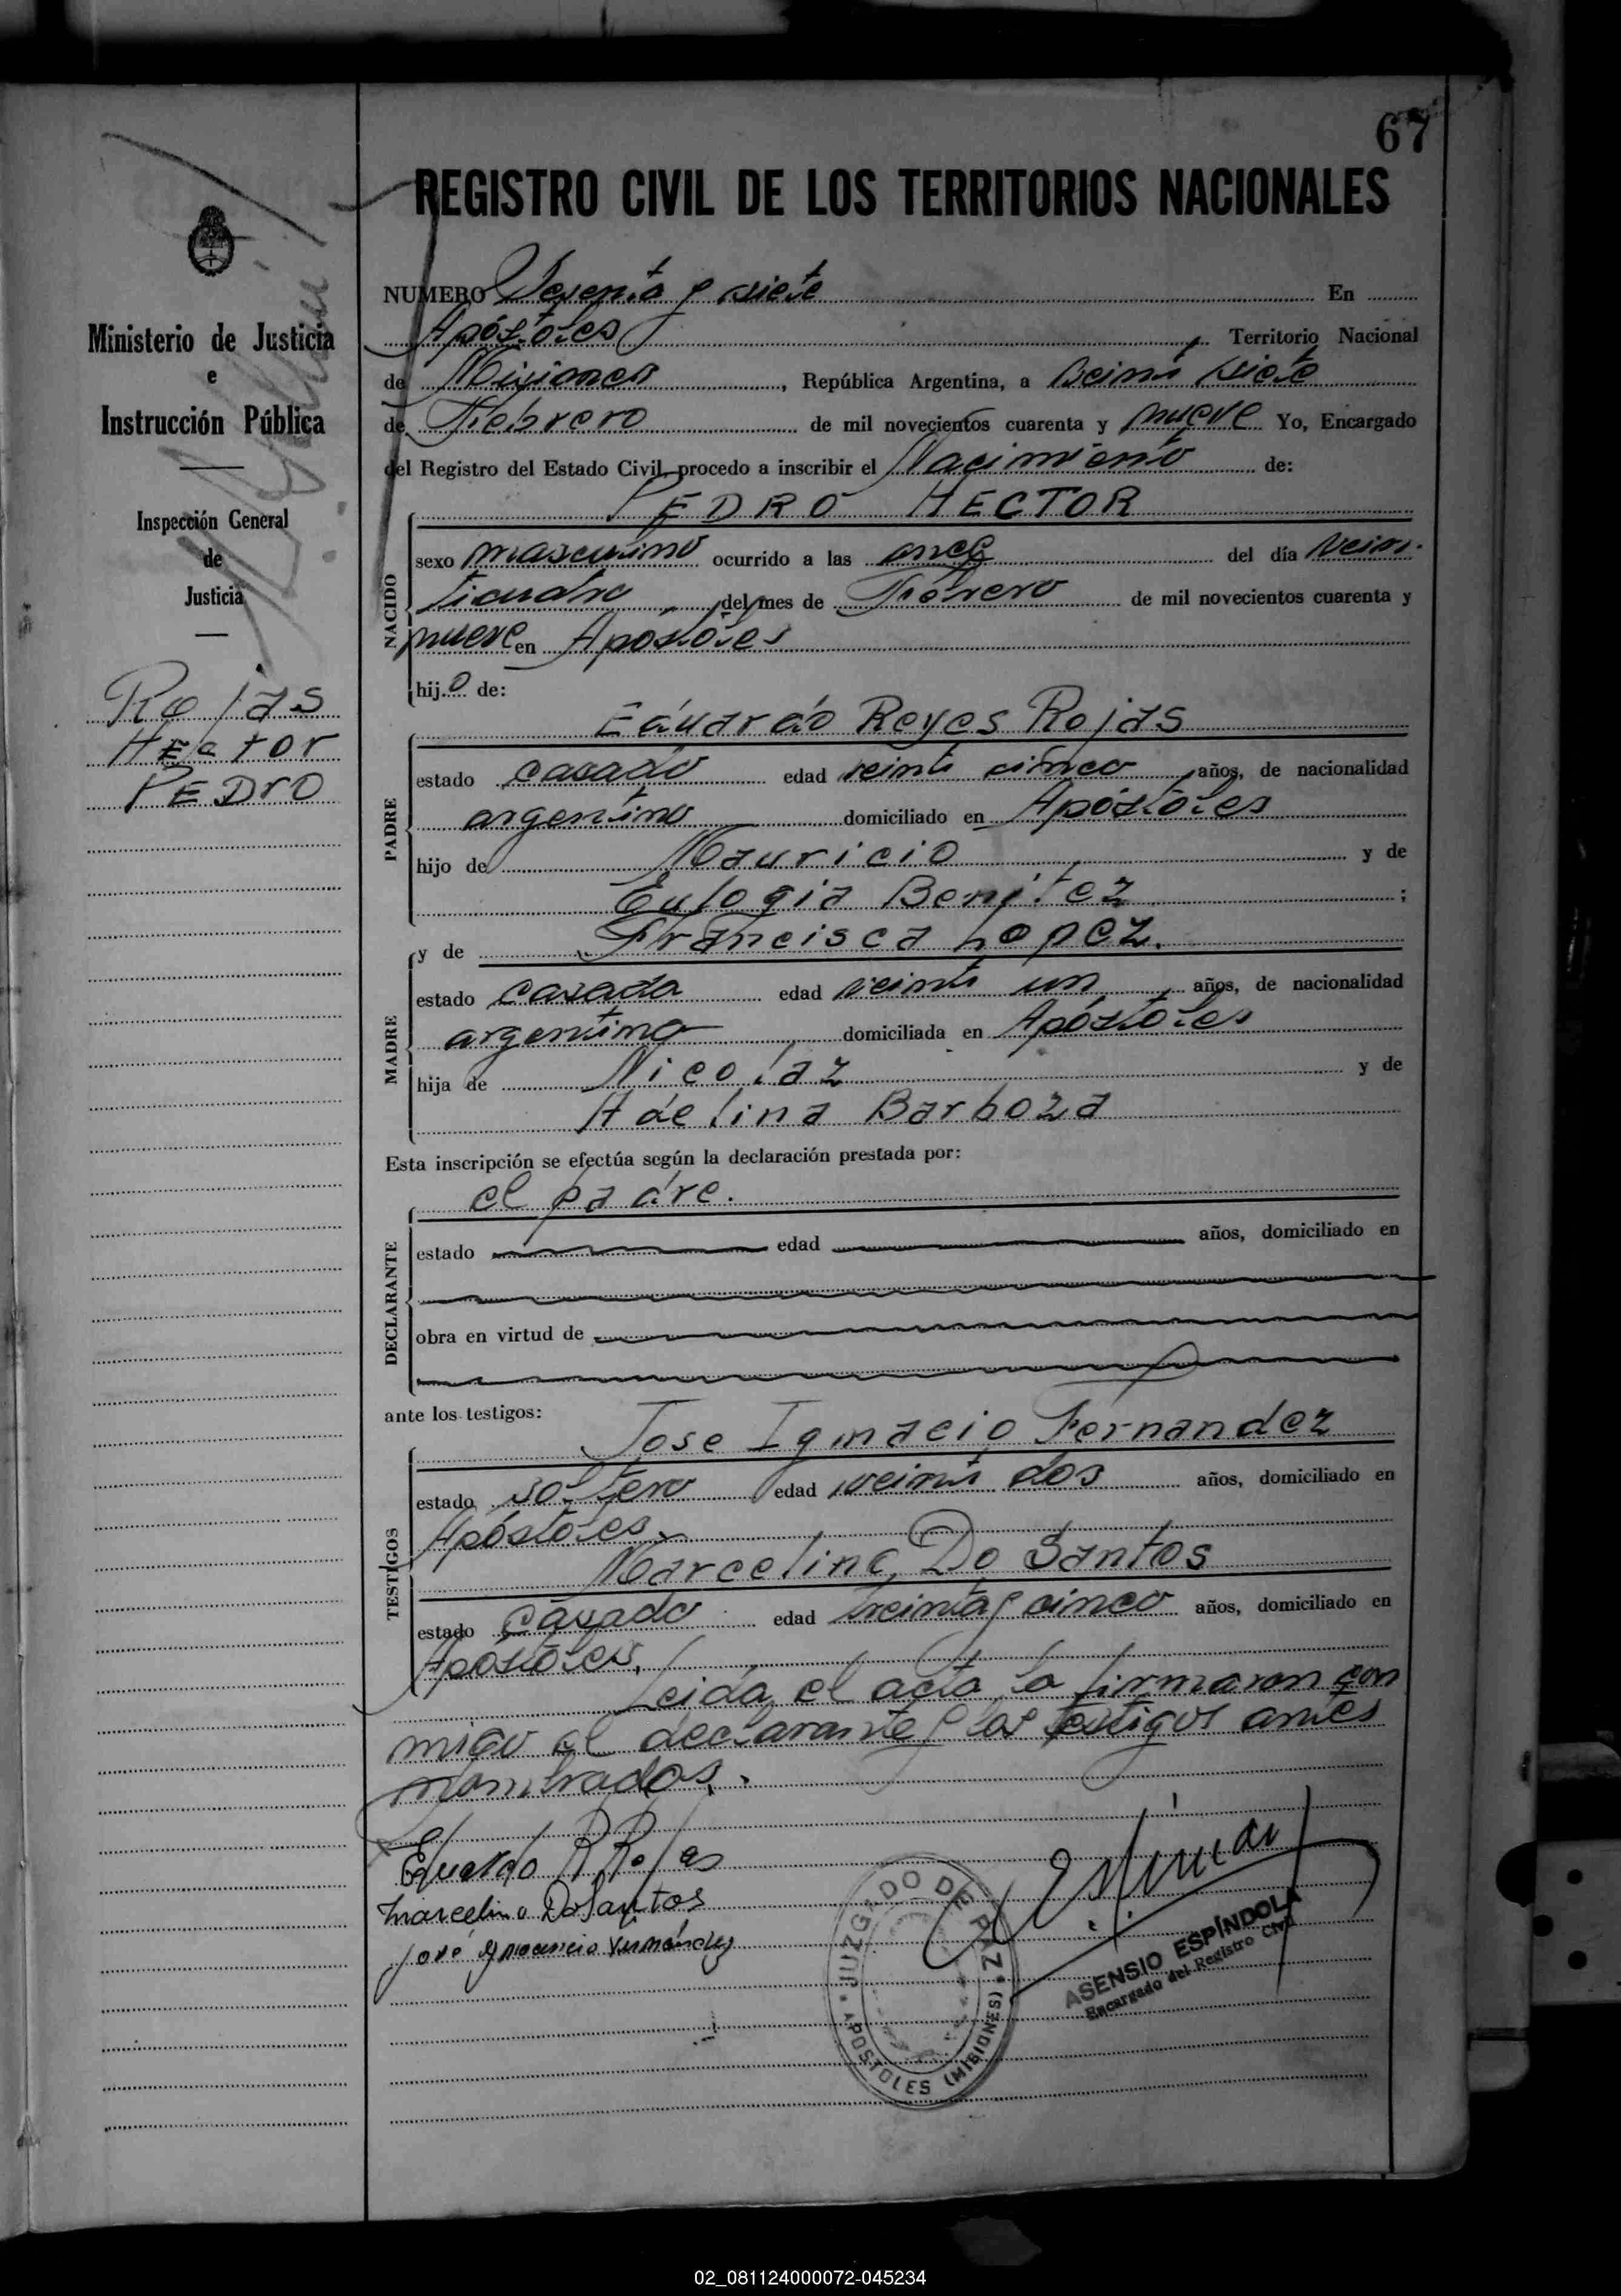 67
REGISTRO CIVIL DE LOS TERRITORIOS NACIONALES
NUMERO Sesenta y siete En
Apóstoles Territorio Nacional
de Misiones, República Argentina, a Beinti siete
de Febrero de mil novecientos cuarenta y nueve Yo, Encargado
del Registro del Estado Civil, procedo a inscribir el Nacimiento de:
PEDRO HECTOR
NACIDO
sexo masculino ocurrido a las once del día vein-
ticuatro del mes de Febrero de mil novecientos cuarenta y
nueve en Apóstoles
hijo de:
PADRE
Eduardo Reyes Rojas
estado casado edad veinti cinco años, de nacionalidad
argentino domiciliado en Apóstoles
hijo de Mauricio y de
Eulogia Benitez ;
MADRE
y de Francisca Lopez.
estado casada edad veinti un años, de nacionalidad
argentina domiciliada en Apóstoles
hija de Nicolaz y de
Adelina Barboza
Esta inscripción se efectúa según la declaración prestada por:
el padre.
DECLARANTE
estado edad años, domiciliado en
obra en virtud de
ante los testigos:
TESTIGOS
Jose Ignacio Fernandez
estado soltero edad veinti dos años, domiciliado en
Apóstoles
Marcelino Do Santos
estado casado edad treinta y cinco años, domiciliado en
Apóstoles.
Leida el acta la firmaron con
migo el declarante y los testigos antes
nombrados.
Eduardo R Rojas
Marcelino DoSantos
José Ignacio Fernández
JUZGADO DE PAZ
APOSTOLES (MISIONES)
ASENSIO ESPÍNDOLA
Encargado del Registro Civil
Ministerio de Justicia
e
Instrucción Pública
Inspección General
de
Justicia
Rojas
Hector
PEDrO
02_081124000072-045234